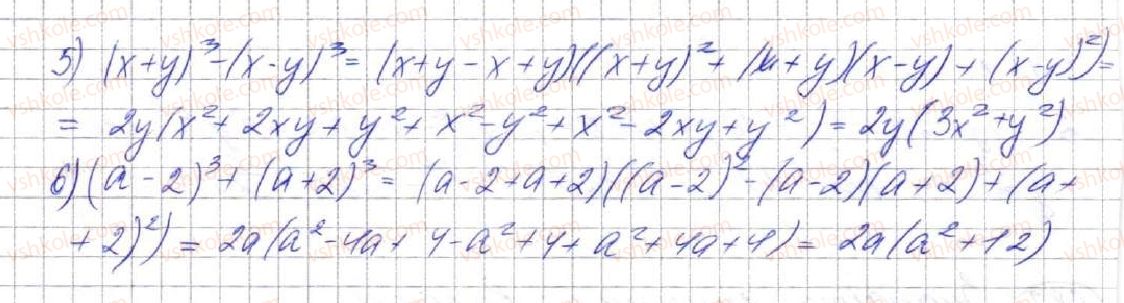 5) (x+y)³-(x-y)³= (x+y-x+y)((x+y)²+(x+y)(x-y)+(x-y)²)=
= 2y(x²+2xy+y²+x²-y²+x²-2xy+y²)=2y(3x²+y²)
6)(a-2)³+(a+2)³=(a-2+a+2)((a-2)²-(a-2)(a+2)+(a+
+2)²)=2a(a²-4a+4-a²+4+a²+4a+4)=2a(a²+12)